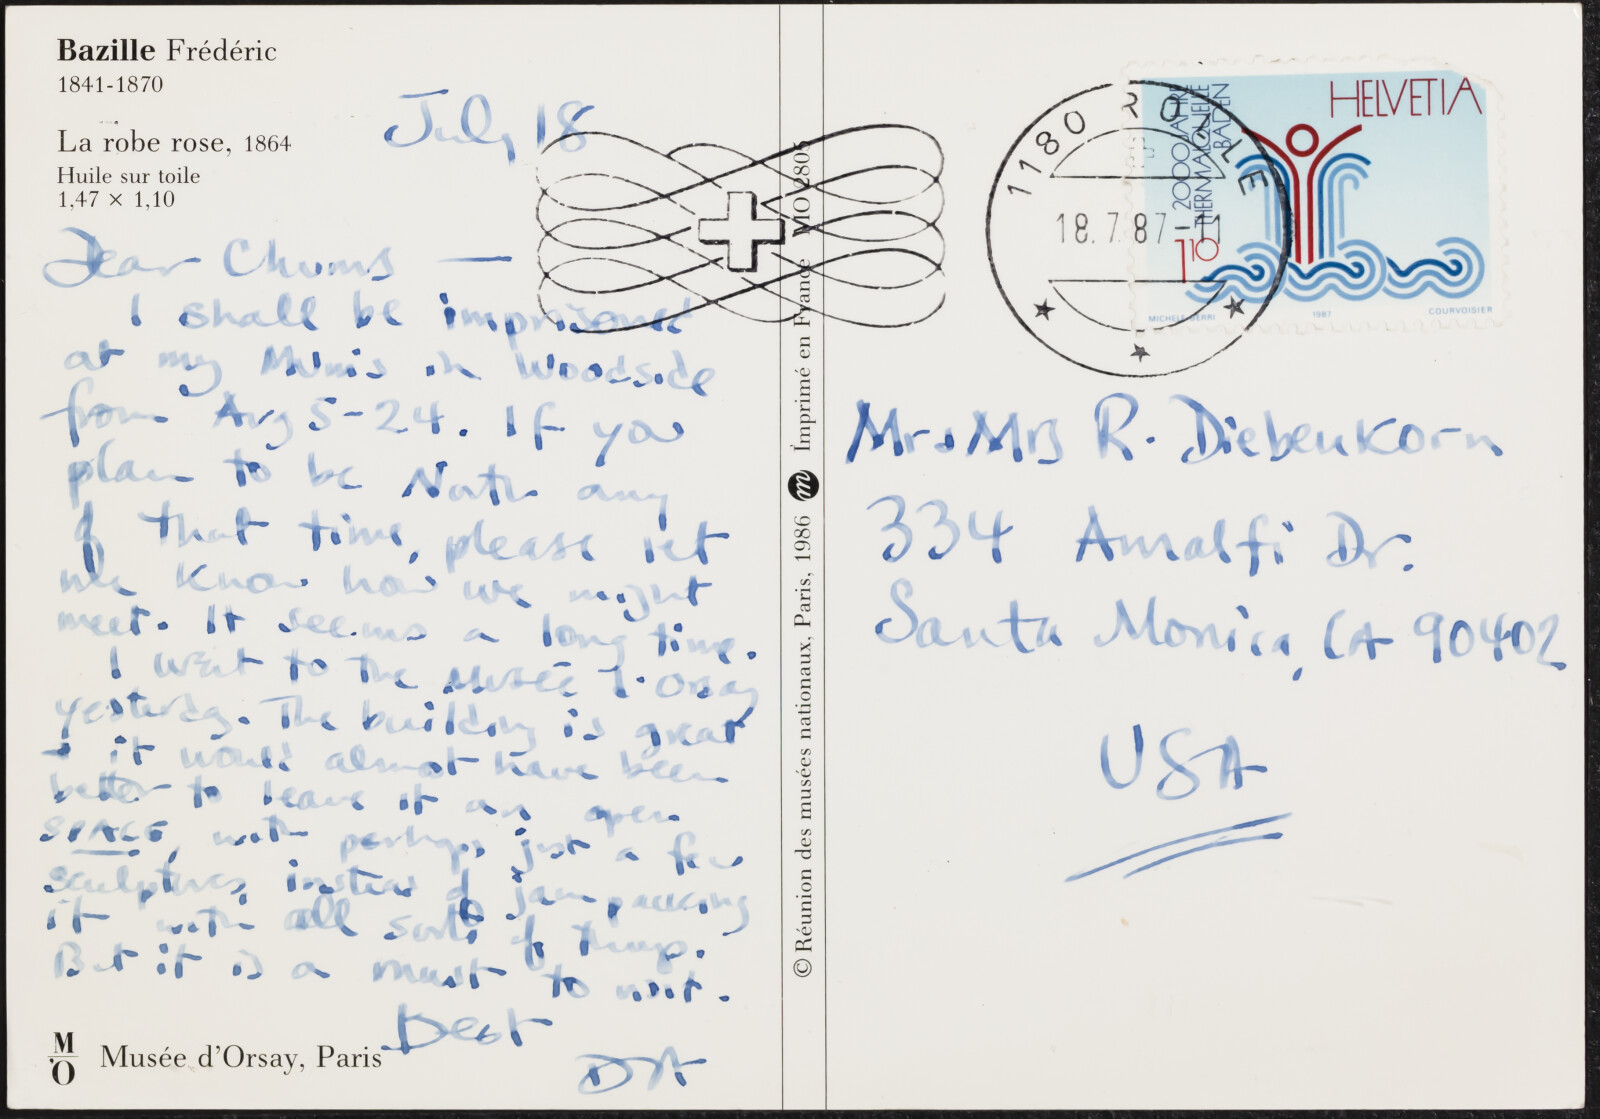 Bazille Frédéric
1841-1870
La robe rose, 1864
Huile sur toile
1,47 × 1,10
July 18
Dear Chums —
I shall be imprisoned
at my Mum's in Woodside
from Aug 5-24. If you
plan to be North any
of that time, please let
me know how we might
meet. It seems a long time.
I went to the Musée d'Orsay
yesterday. The building is great
& it would almost have been
better to leave it an open
SPACE, with perhaps just a few
sculptures, instead of jam packing
it with all sorts of things.
But it is a must to visit.
Best
DA
M'O
Musée d'Orsay, Paris
© Réunion des musées nationaux, Paris, 1986 m Imprimé en France MO 2805
1180 ROLLE
18.7.87-11
HELVETIA
2000 JAHRE
THERMALQUELLE
BADEN
110
MICHELE BERRI 1987 COURVOISIER
Mr. Mrs R. Diebenkorn
334 Amalfi Dr.
Santa Monica, CA 90402
USA